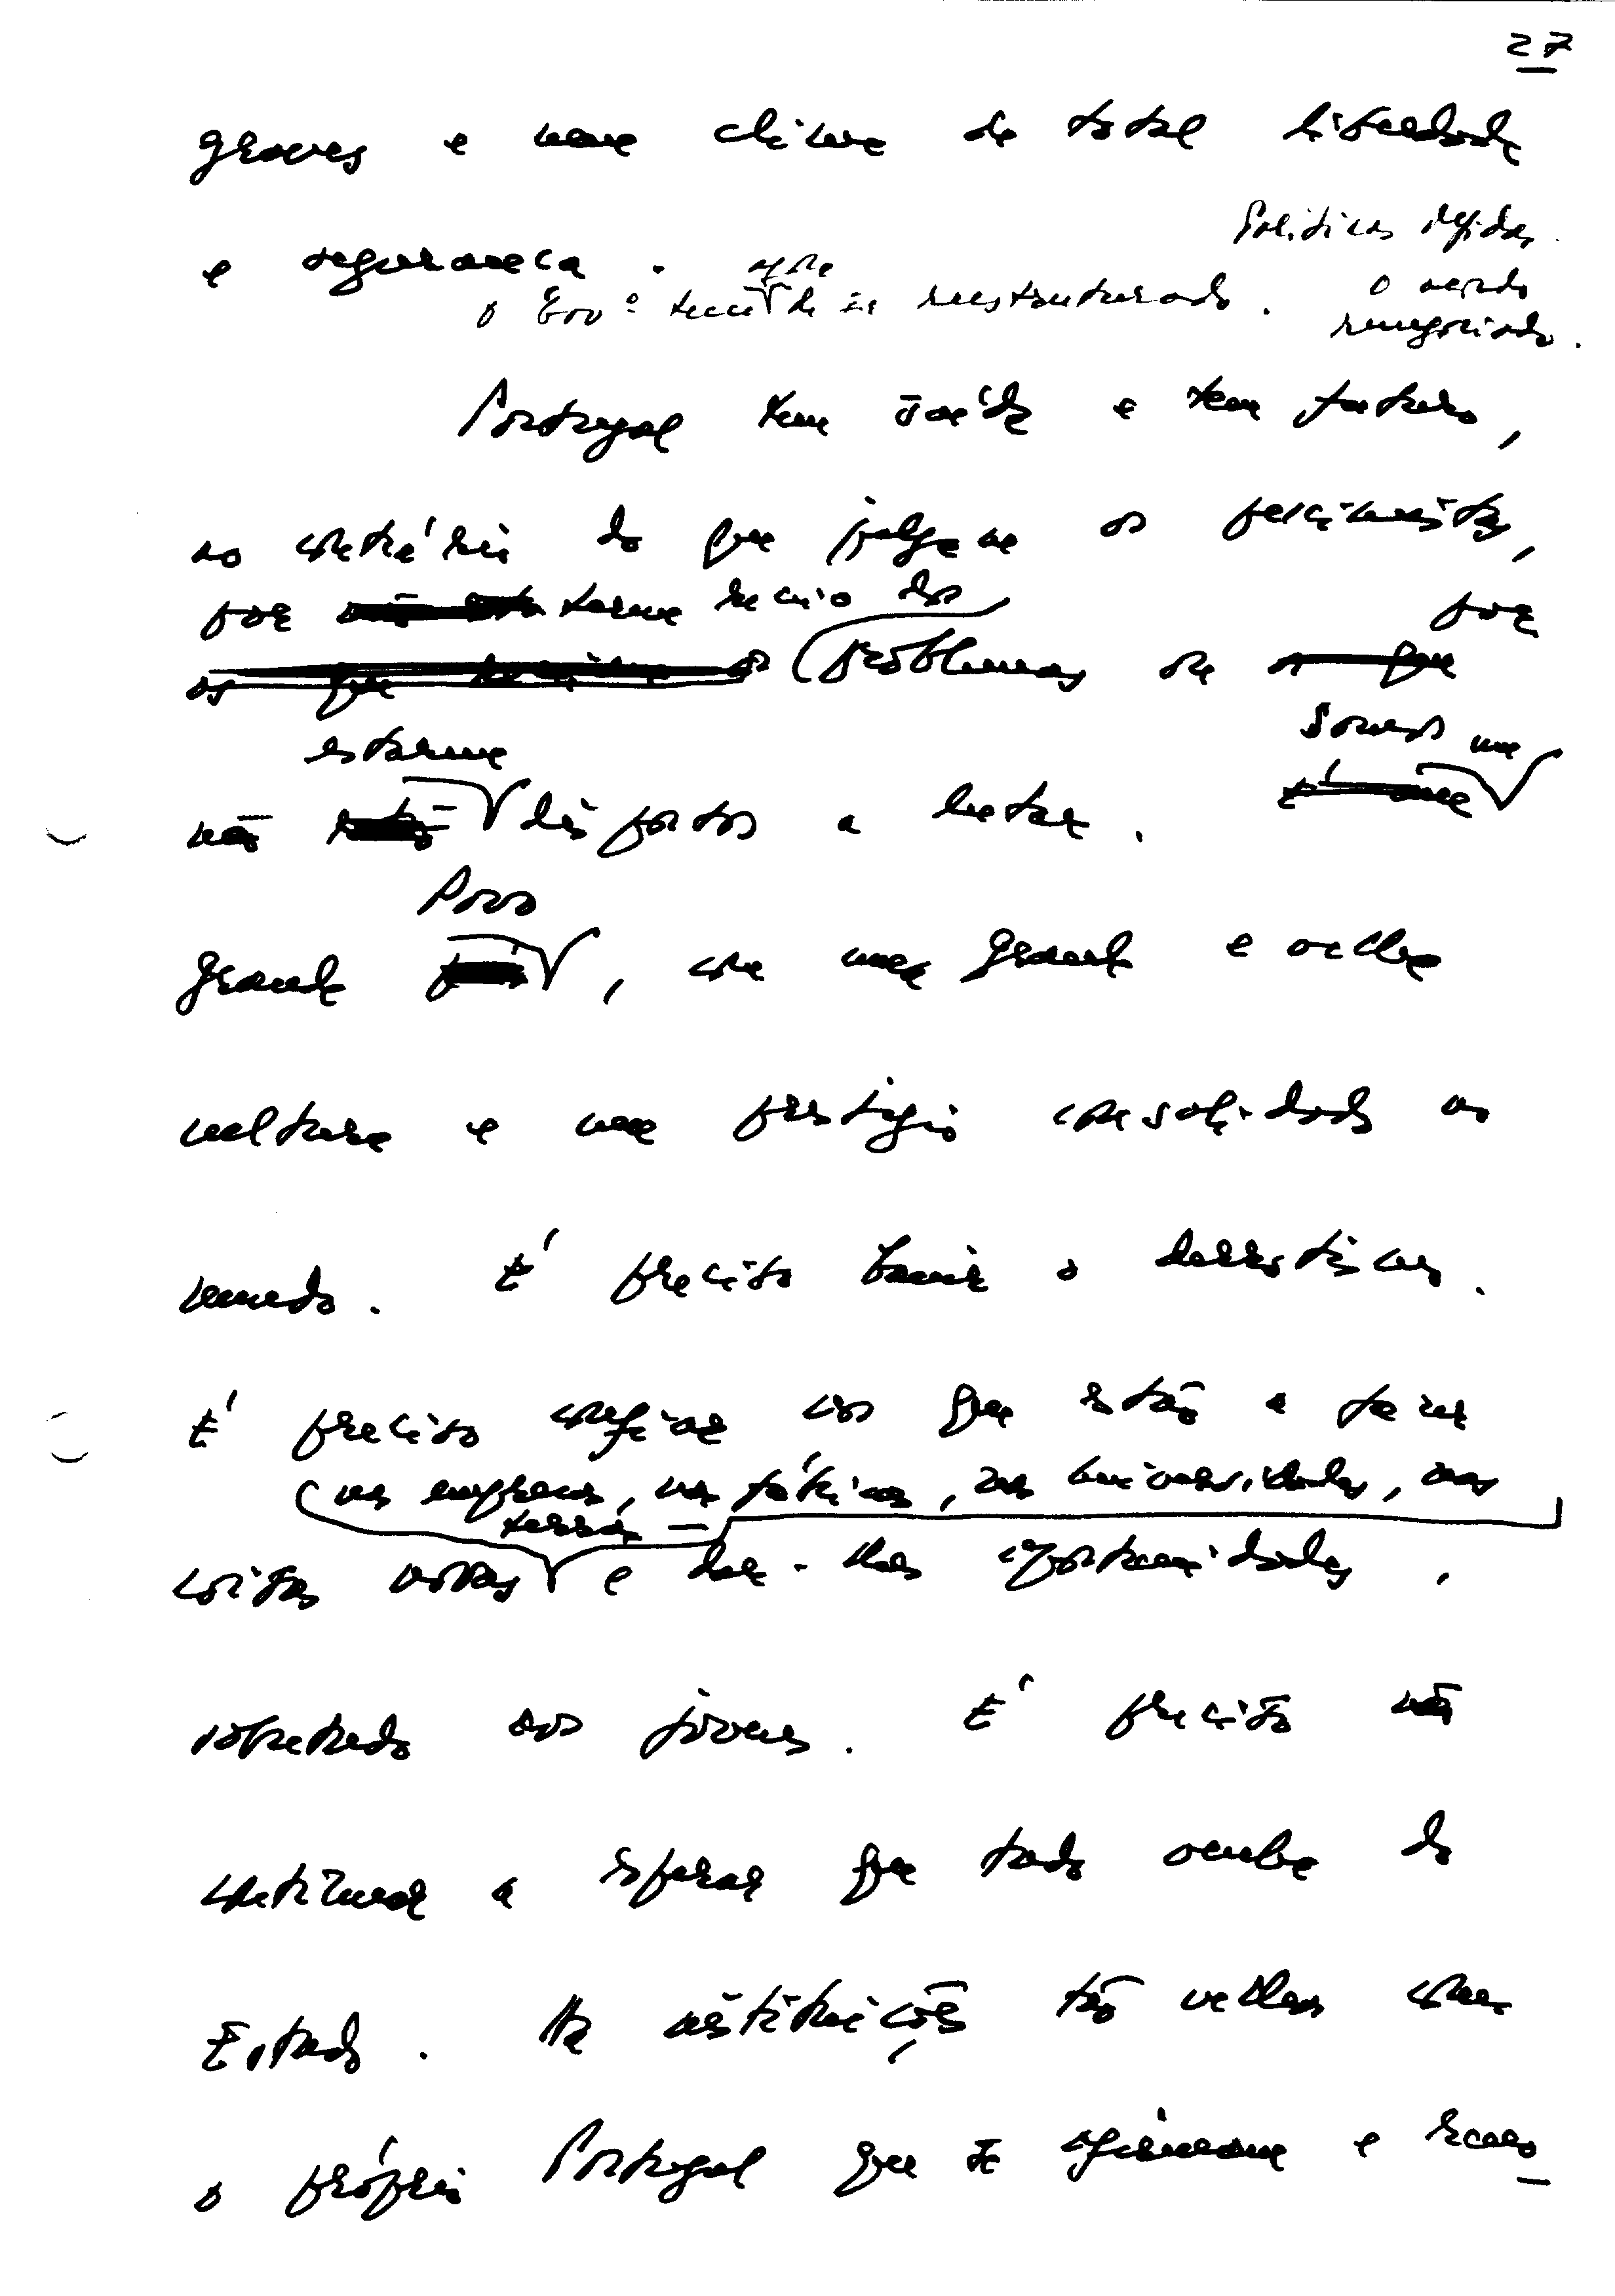 27
graves e num clima de total liberdade
Políticas rígidas.
e segurança.
o Gov.º tem de ser reestruturado. o acordo
renegociado.
Portugal tem saída e tem futuro,
ao contrário do que julgam os pessimistas,
por terem receio dos por
os que problemas ou o que
estarem Somos um
não dispostos a lutar. É um
Povo
grande , com uma grande e velha
cultura e um prestígio consolidado no
mundo. É preciso banir o derrotismo.
É preciso confiar nos que estão a fazer
nas empresas, nas fábricas, nas universidades, nas
terras —
coisas novas e dar-lhes oportunidades,
sobretudo aos jovens. É preciso não
continuar a esperar que tudo venha do
Estado. Há instituições tão velhas como
o próprio Portugal que se afirmam e reno-